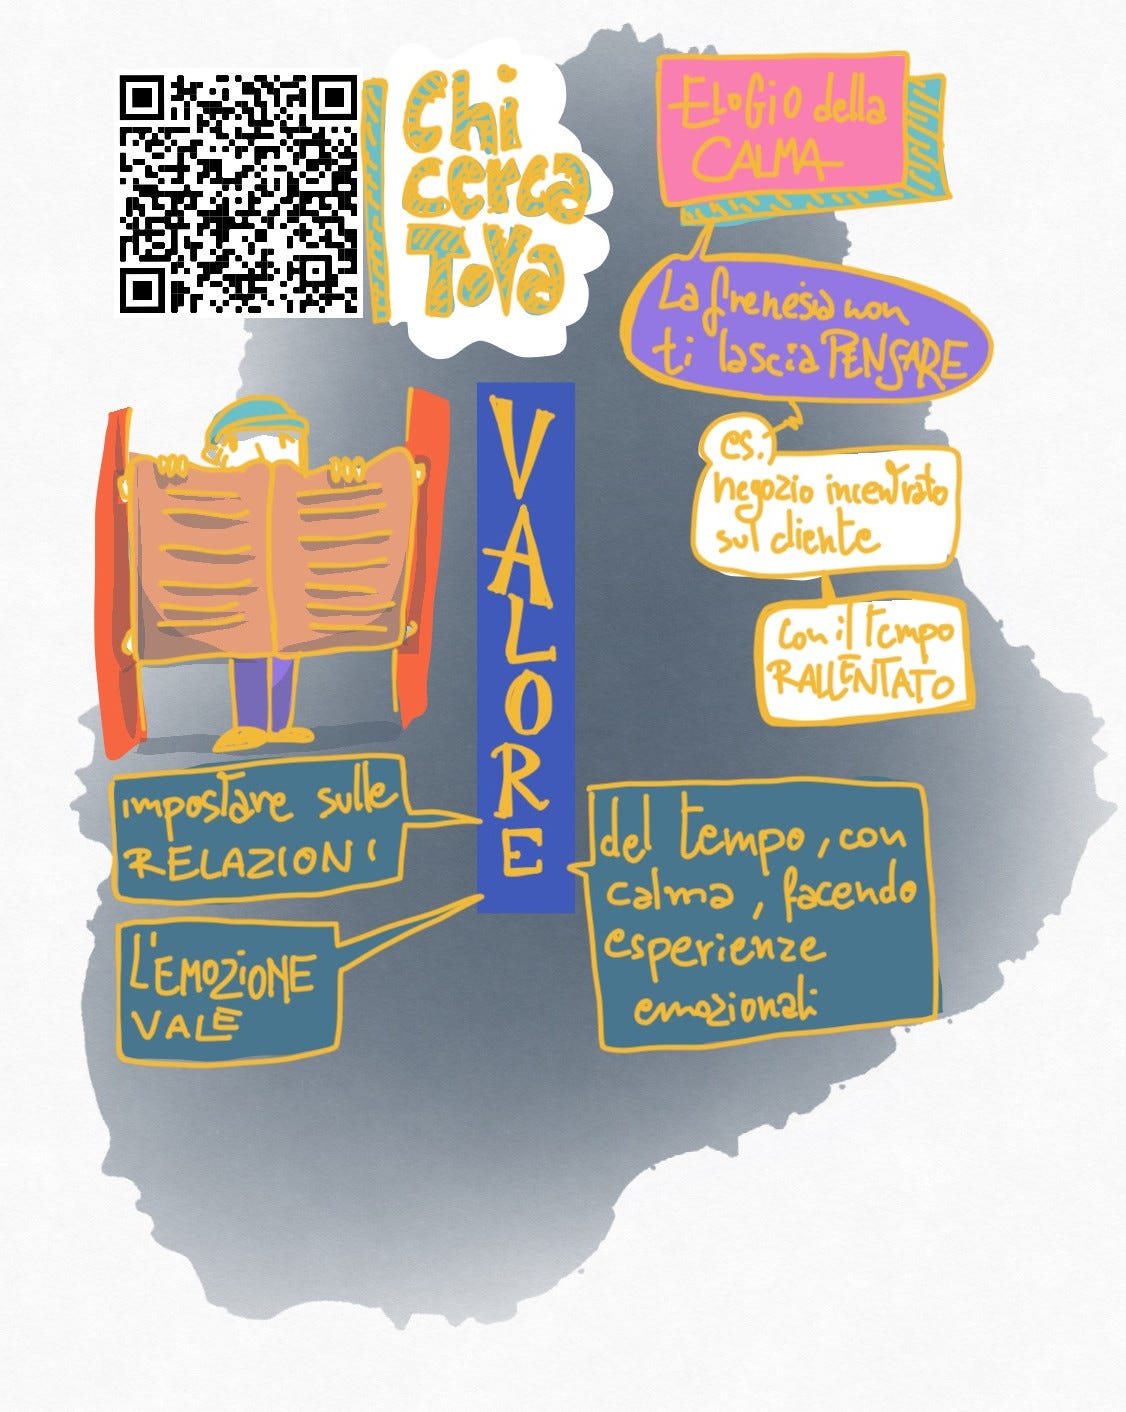 Chi
cerca
TROVA
ELOGIO della
CALMA
La frenesia non
ti lascia PENSARE
es.
negozio incentrato
sul cliente
con il tempo
RALLENTATO
VALORE
impostare sulle
RELAZIONI
L'EMOZIONE
VALE
del tempo, con
calma, facendo
esperienze
emozionali